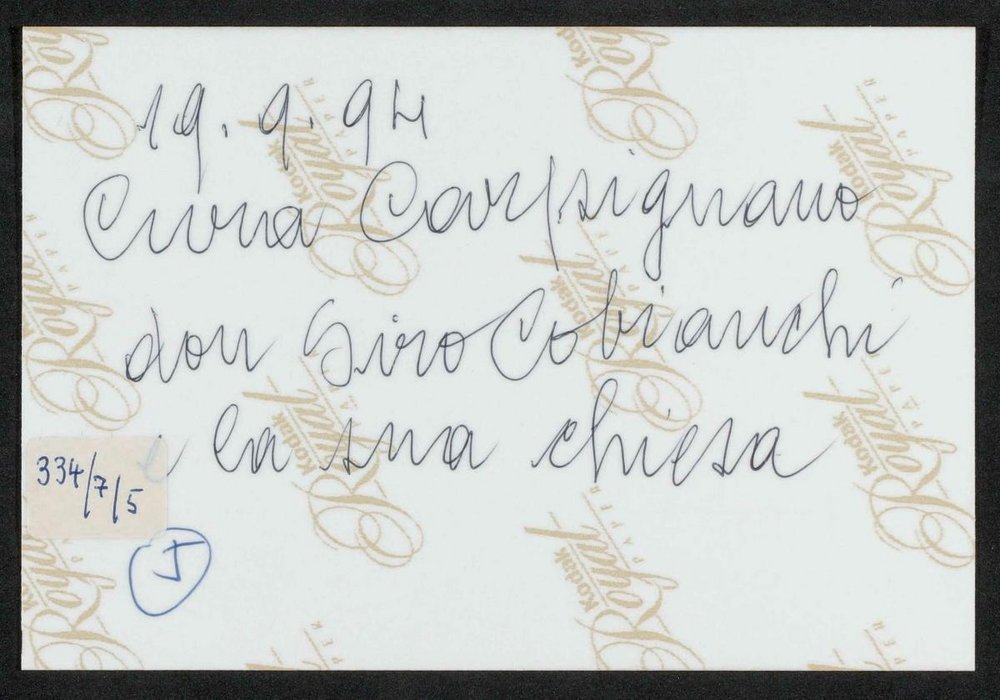 19.9.94
Cura Carpignano
don Siro Cobianchi
e la sua chiesa
334/7/5
5
Kodak Royal PAPER